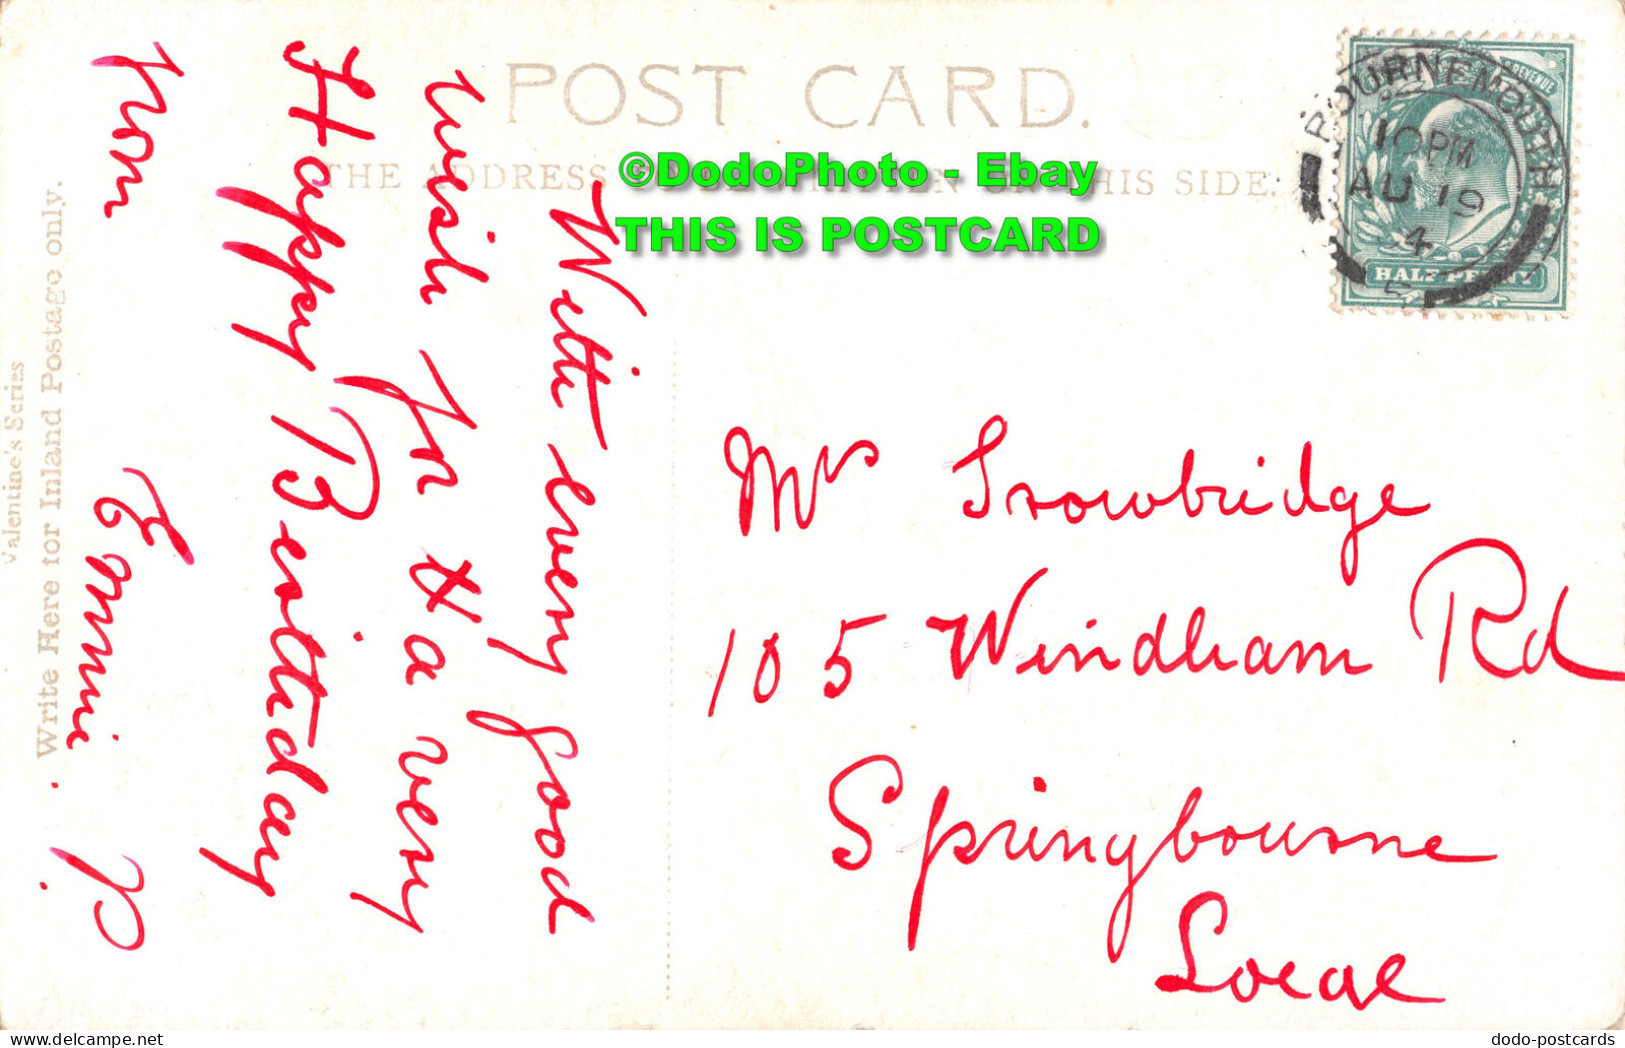 POST CARD.
THE ADDRESS THIS SIDE.
©DodoPhoto - Ebay
THIS IS POSTCARD
BOURNEMOUTH
10 PM
AU 19
04
5
REVENUE
HALFPENNY
Mrs Trowbridge
105 Windham Rd
Springbourne
Local
With every good
wish for
a very
Happy Birthday
from
Emmie. P.
Write Here for Inland Postage only.
Valentine's Series
dodo-postcards